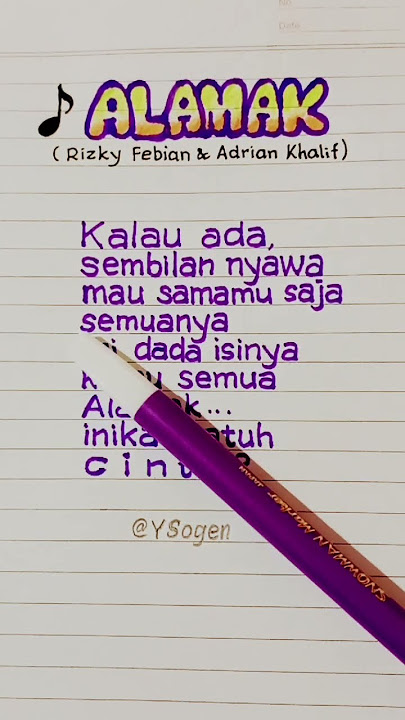 No
Date
ALAMAK
(Rizky Febian & Adrian Khalif)
Kalau ada,
sembilan nyawa
mau samamu saja
semuanya
dada isinya
semua
cint
@YSogen
SNOWMAN Marker